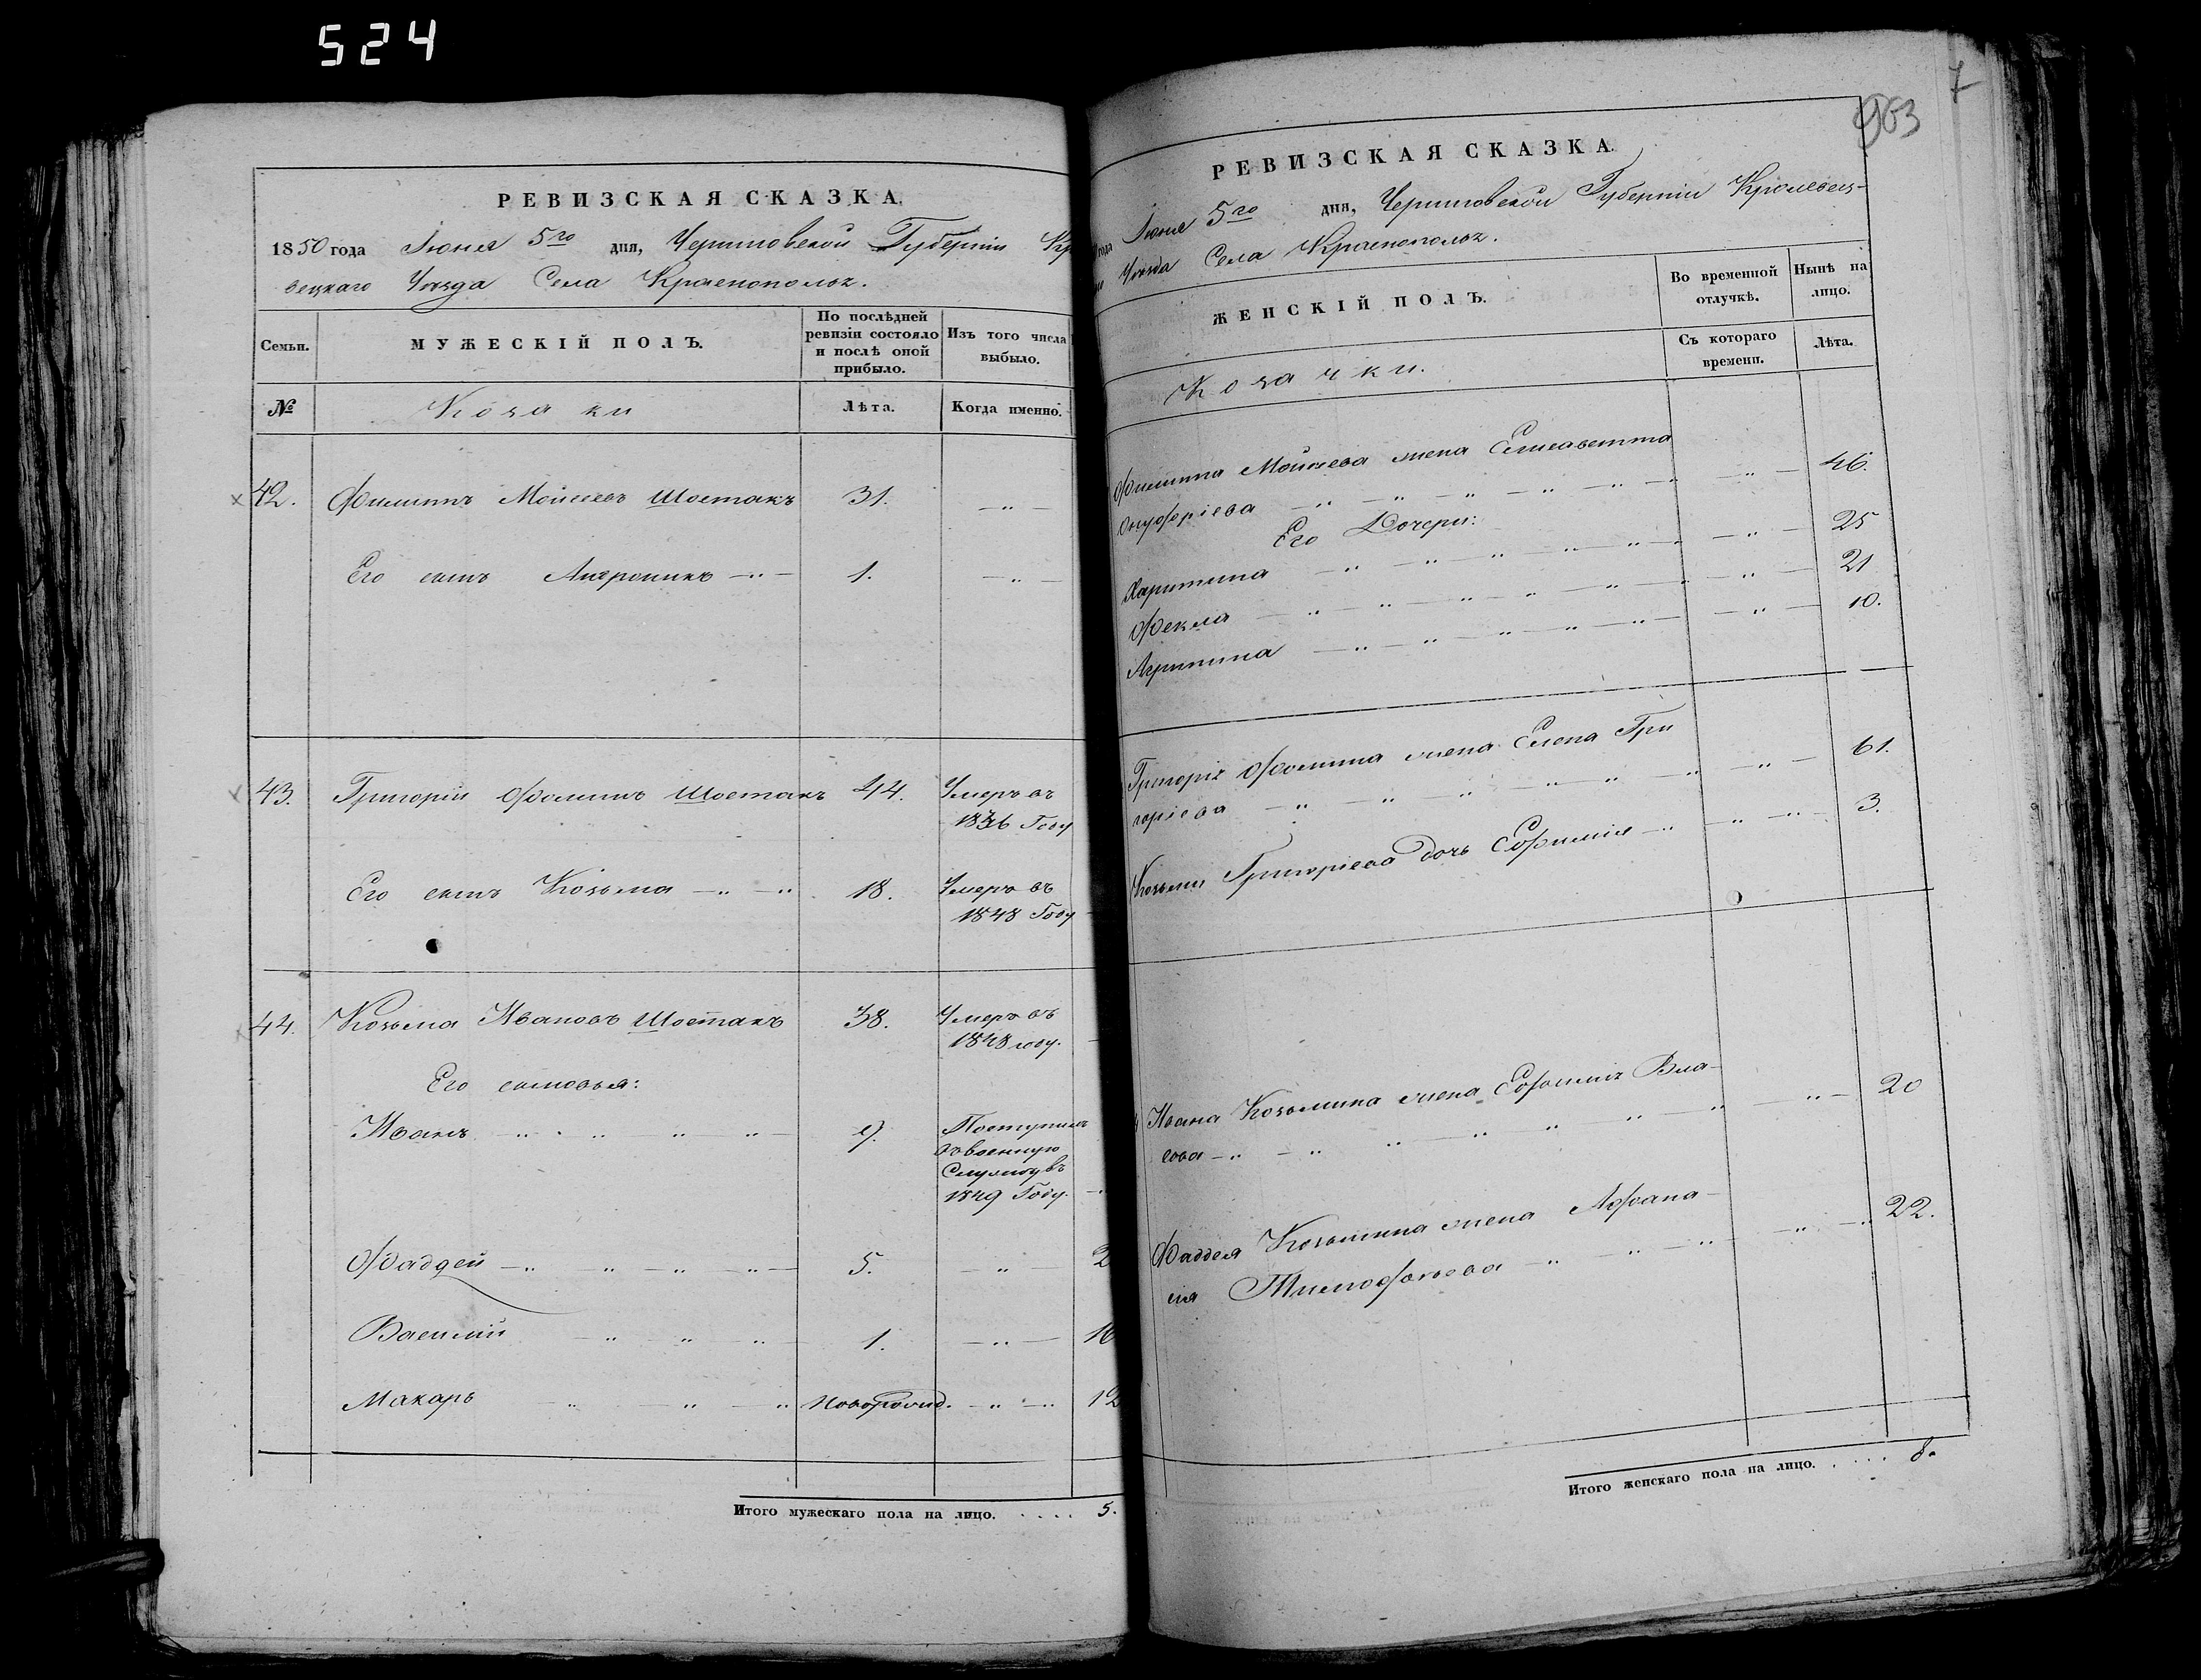 524
РЕВИЗСКАЯ СКАЗКА.
1850 года Іюня 5го дня, Черниговской Губерніи Кр
вецкаго Уѣзда Села Краснополья.
Семьи.
МУЖЕСКІЙ ПОЛЪ.
По послѣдней ревизіи состояло и послѣ оной прибыло.
Изъ того числа выбыло.
№
Козаки
Лѣта.
Когда именно.
42. Филиппъ Мойсеевъ Шостакъ 31. — " —
Его сынъ Андроникъ — " — 1. — " —
43. Григорій Фоминъ Шостакъ 44. Умеръ въ
1836 Году
Его сынъ Козьма — " — " 18. Умеръ въ
1848 Году
44. Козьма Ивановъ Шостакъ 38. Умеръ въ
1848 году.
Его сыновья:
Иванъ — " — " " " — 9. Поступилъ
въ военную
Службу въ
1849 Году.
Фаддей — " " — " — " — 5. — " — 2
Василій — " — " — " 1. — " — 16
Макаръ — " " — " Новорожд. — " — " 12
Итого мужескаго пола на лицо. . . . . 5.
7
963
РЕВИЗСКАЯ СКАЗКА
года Іюня 5го дня, Черниговской Губерніи Кролевец-
Уѣзда Села Краснополья.
ЖЕНСКІЙ ПОЛЪ.
Во временной отлучкѣ.
Нынѣ на лицо.
Козачки.
Съ котораго времени.
Лѣта.
Филиппа Мойсеева жена Елисаветта
Онуфріева — " — " — " — " — " — " — 46.
Его Дочери:
Харитина — " — " — " — " — " — " — 25
Фекла — " — " — " — " — " — " — 21
Агрипина — " — " — " — " — " — " — 10.
Григорія Фомина жена Елена Гри
горіева — " — " — " — " — " — " — 61.
Козьмы Григоріева дочь Евфимія — " — " — " — 3.
Ивана Козьмина жена Евфимія Вла-
сова — " — " " — " — " " — " " — 20
Фаддея Козьмина жена Афана-
сія Тимофѣева — " " — " — " — " 22.
Итого женскаго пола на лицо. . . . . 8.